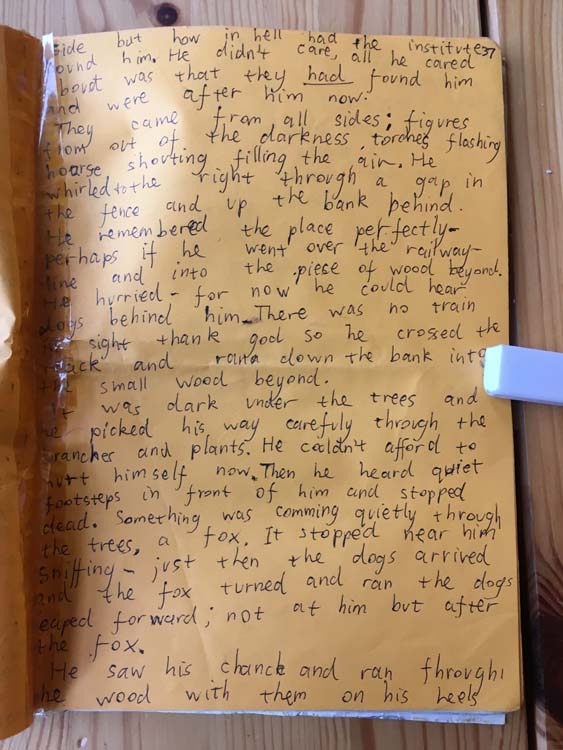 side but how in hell had the institute 37
ound him. He didn't care, all he cared
bout was that they had found him
and were after him now.
They came from all sides; figures
from out of the darkness, torches flashing
hoarse shouting filling the air. He
whirled to the right through a gap in
the fence and up the bank behind.
He remembered the place perfectly-
perhaps if he went over the railway-
line and into the piece of wood beyond.
He hurried - for now he could hear
dogs behind him. There was no train
in sight thank god so he crossed the
track and rana down the bank into
the small wood beyond.
It was dark under the trees and
he picked his way carefuly through the
branches and plants. He couldn't afford to
hurt himself now. Then he heard quiet
footsteps in front of him and stopped
dead. Something was comming quietly through
the trees, a fox. It stopped near him
sniffing - just then the dogs arrived
and the fox turned and ran the dogs
eaped forward; not at him but after
the fox.
He saw his chance and ran through
he wood with them on his heels